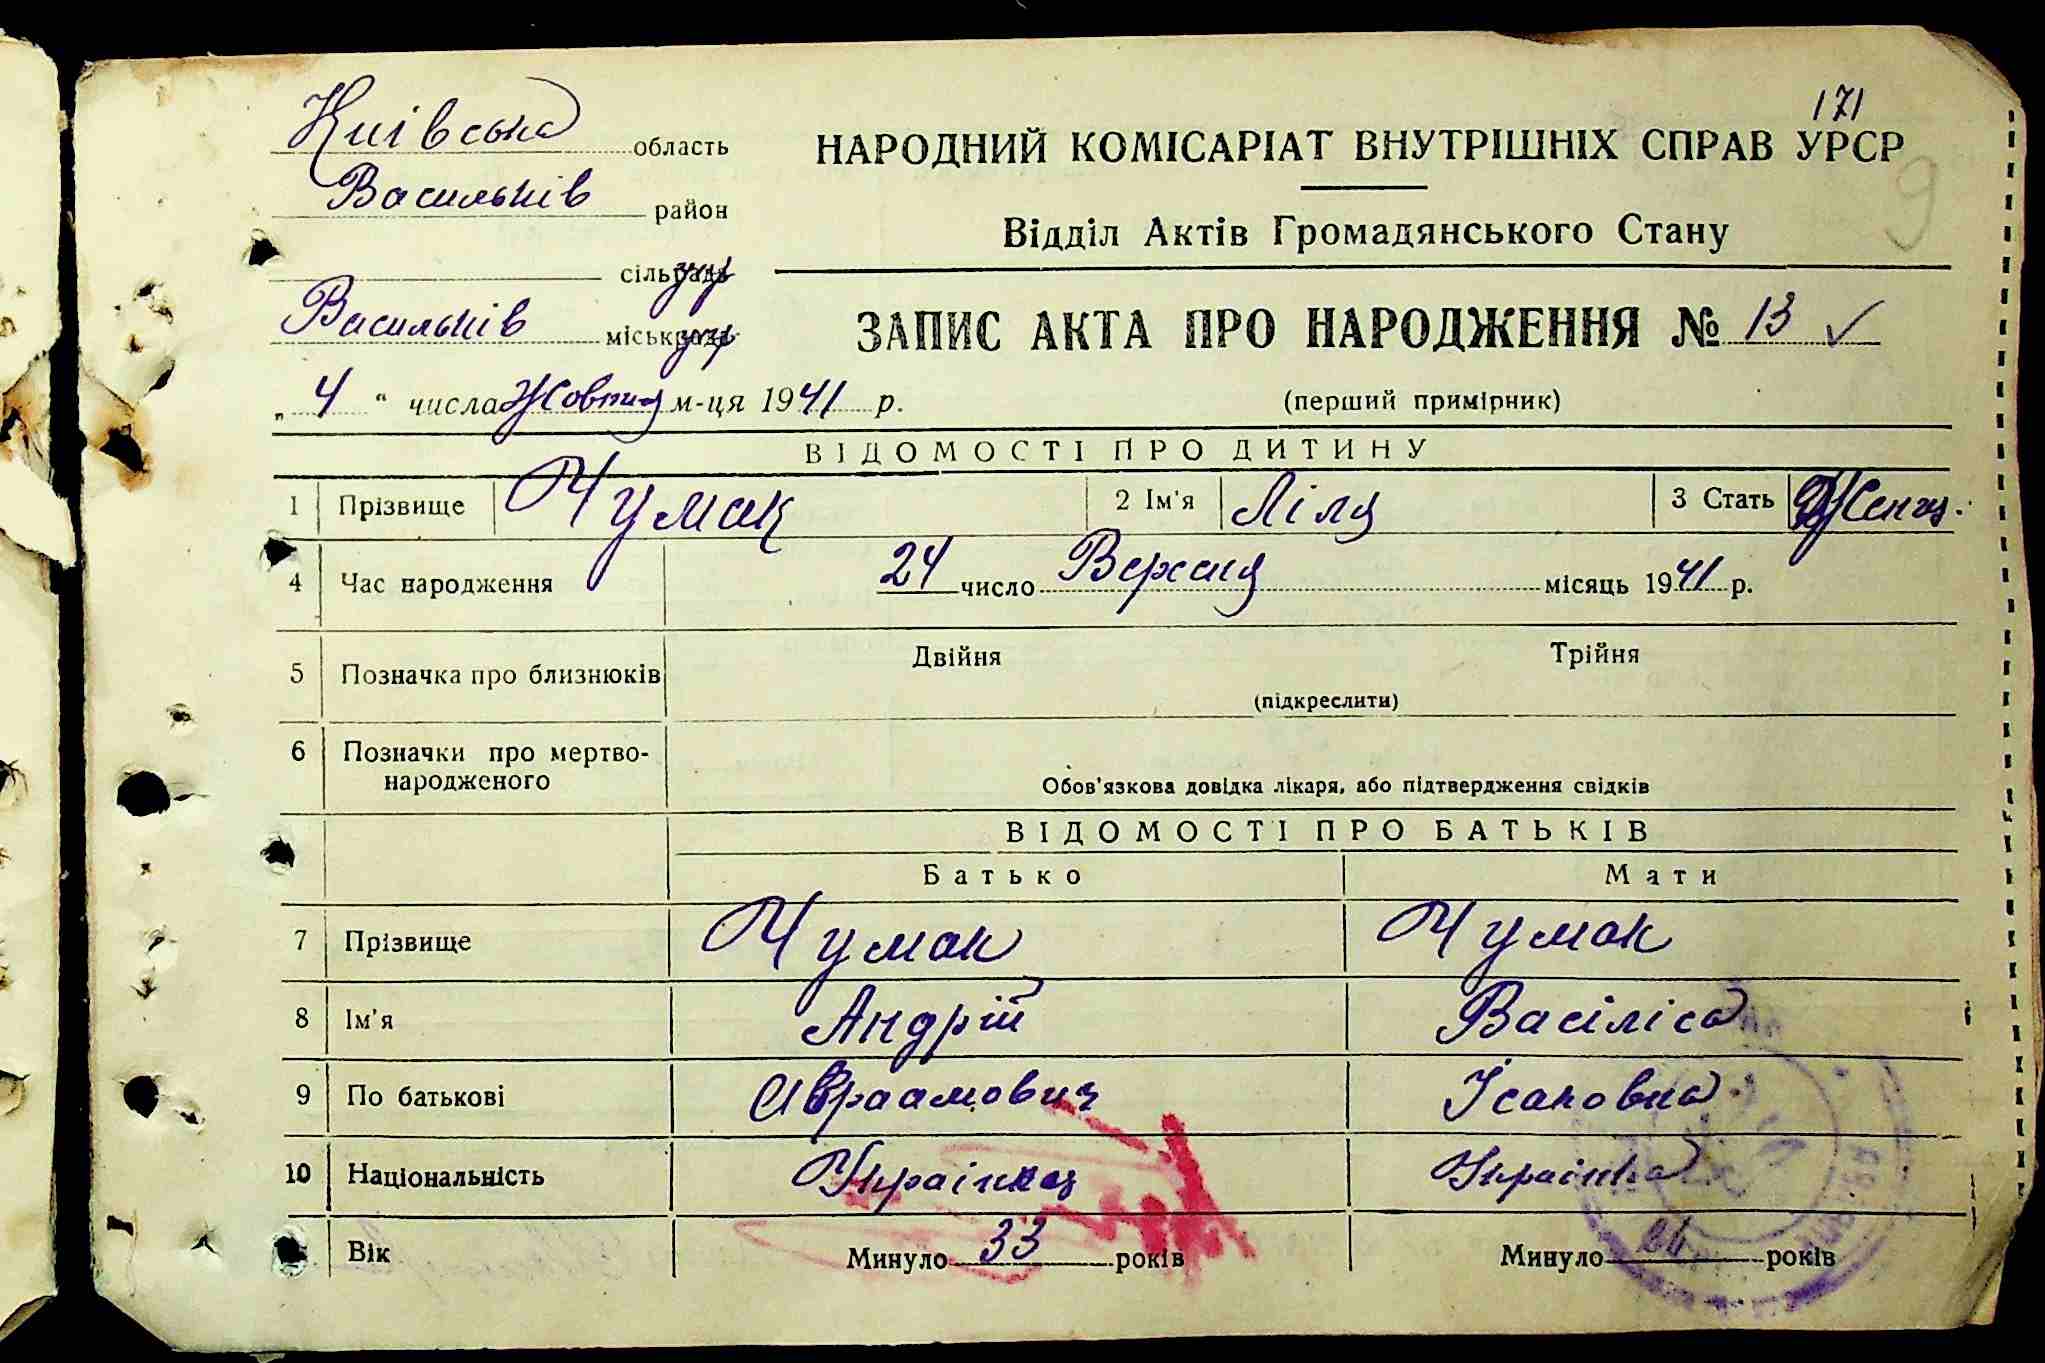 171
Київська область
НАРОДНИЙ КОМІСАРІАТ ВНУТРІШНІХ СПРАВ УРСР
9
Васильків район
Відділ Актів Громадянського Стану
сільрада
Васильків міськрада
ЗАПИС АКТА ПРО НАРОДЖЕННЯ № 13
„4“ числа Жовтня м-ця 1941 р.
(перший примірник)
ВІДОМОСТІ ПРО ДИТИНУ
1 Прізвище Чумак 2 Ім'я Ліля 3 Стать Жіноч.
4 Час народження 24 число Вересня місяць 1941 р.
Двійня Трійня
5 Позначка про близнюків
(підкреслити)
6 Позначки про мертво-
народженого
Обов'язкова довідка лікаря, або підтвердження свідків
ВІДОМОСТІ ПРО БАТЬКІВ
Батько Мати
7 Прізвище Чумак Чумак
8 Ім'я Андрій Василіса
9 По батькові Авраамович Ісаковна
10 Національність Українец Українка
Вік Минуло 33 років Минуло років